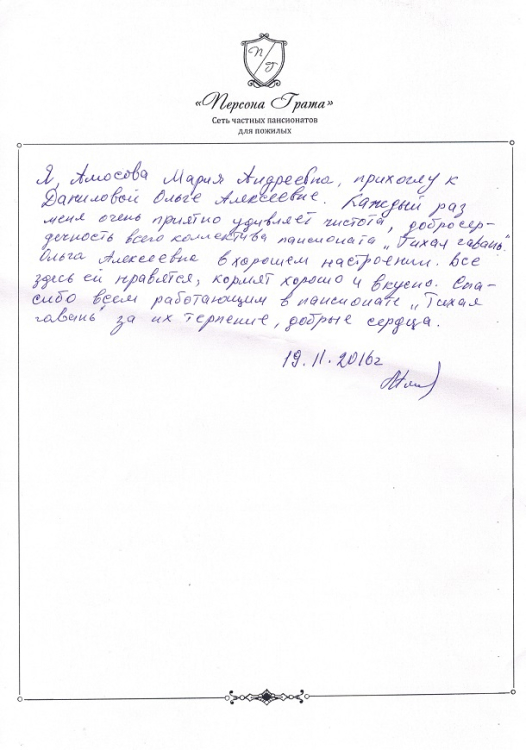 П Г
«Персона Грата»
Сеть частных пансионатов
для пожилых
Я, Амосова Мария Андреевна, прихожу к
Даниловой Ольге Алексеевне. Каждый раз
меня очень приятно удивляет чистота, добросер-
дечность всего коллектива пансионата „Тихая гавань".
Ольга Алексеевна в хорошем настроении. Все
здесь ей нравятся, кормят хорошо и вкусно. Спа-
сибо всем работающим в пансионате „Тихая
гавань" за их терпение, добрые сердца.
19.11.2016г